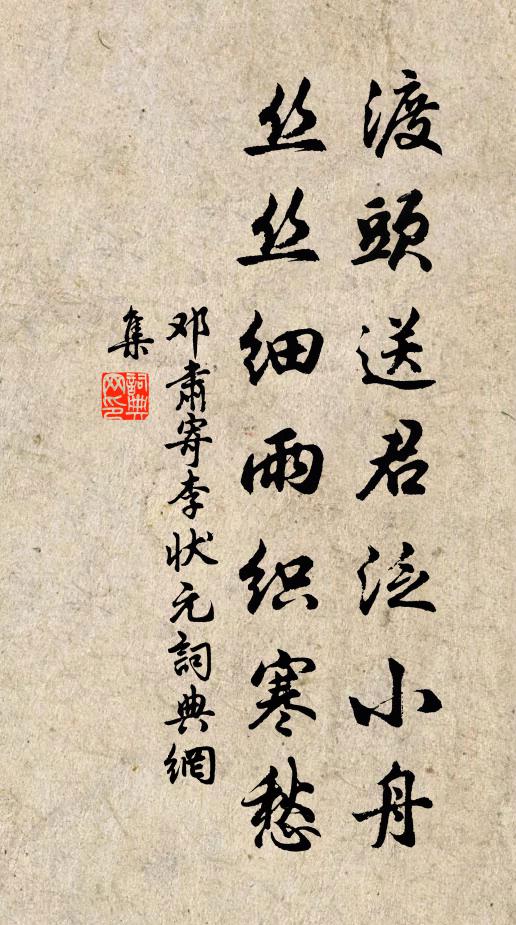 渡頭送君泛小舟
丝丝细雨织寒愁
邓肅寄李状元詞典網
集
詞典
网印